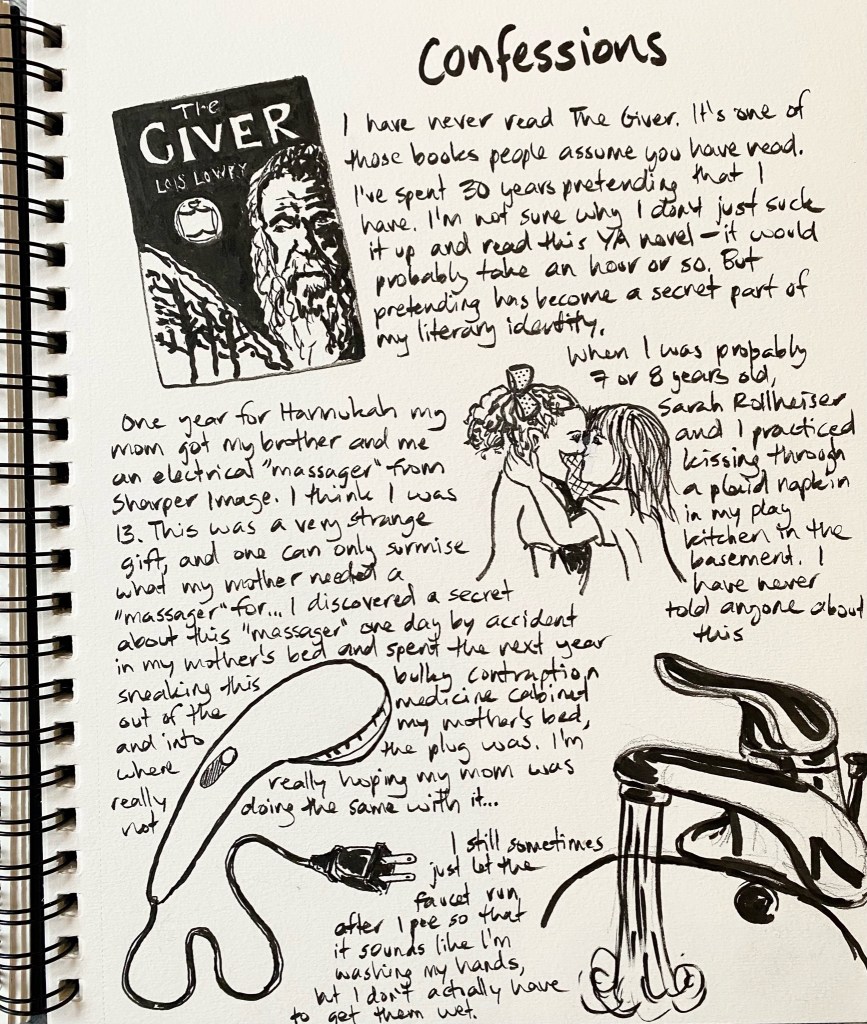 Confessions
The
GIVER
LOIS LOWRY
I have never read The Giver. It's one of
those books people assume you have read.
I've spent 30 years pretending that I
have. I'm not sure why I don't just suck
it up and read this YA novel – it would
probably take an hour or so. But
pretending has become a secret part of
my literary identity.
When I was probably
7 or 8 years old,
Sarah Rollheiser
and I practiced
kissing through
a plaid napkin
in my play
kitchen in the
basement. I
have never
told anyone about
this
One year for Hannukah my
mom got my brother and me
an electrical "massager" from
Sharper Image. I think I was
13. This was a very strange
gift, and one can only surmise
what my mother needed a
"massager" for... I discovered a secret
about this "massager" one day by accident
in my mother's bed and spent the next year
sneaking this bulky contraption
out of the medicine cabinet
and into my mother's bed,
where the plug was. I'm
really really hoping my mom was
not doing the same with it...
I still sometimes
just let the
faucet run
after I pee so that
it sounds like I'm
washing my hands,
but I don't actually have
to get them wet.